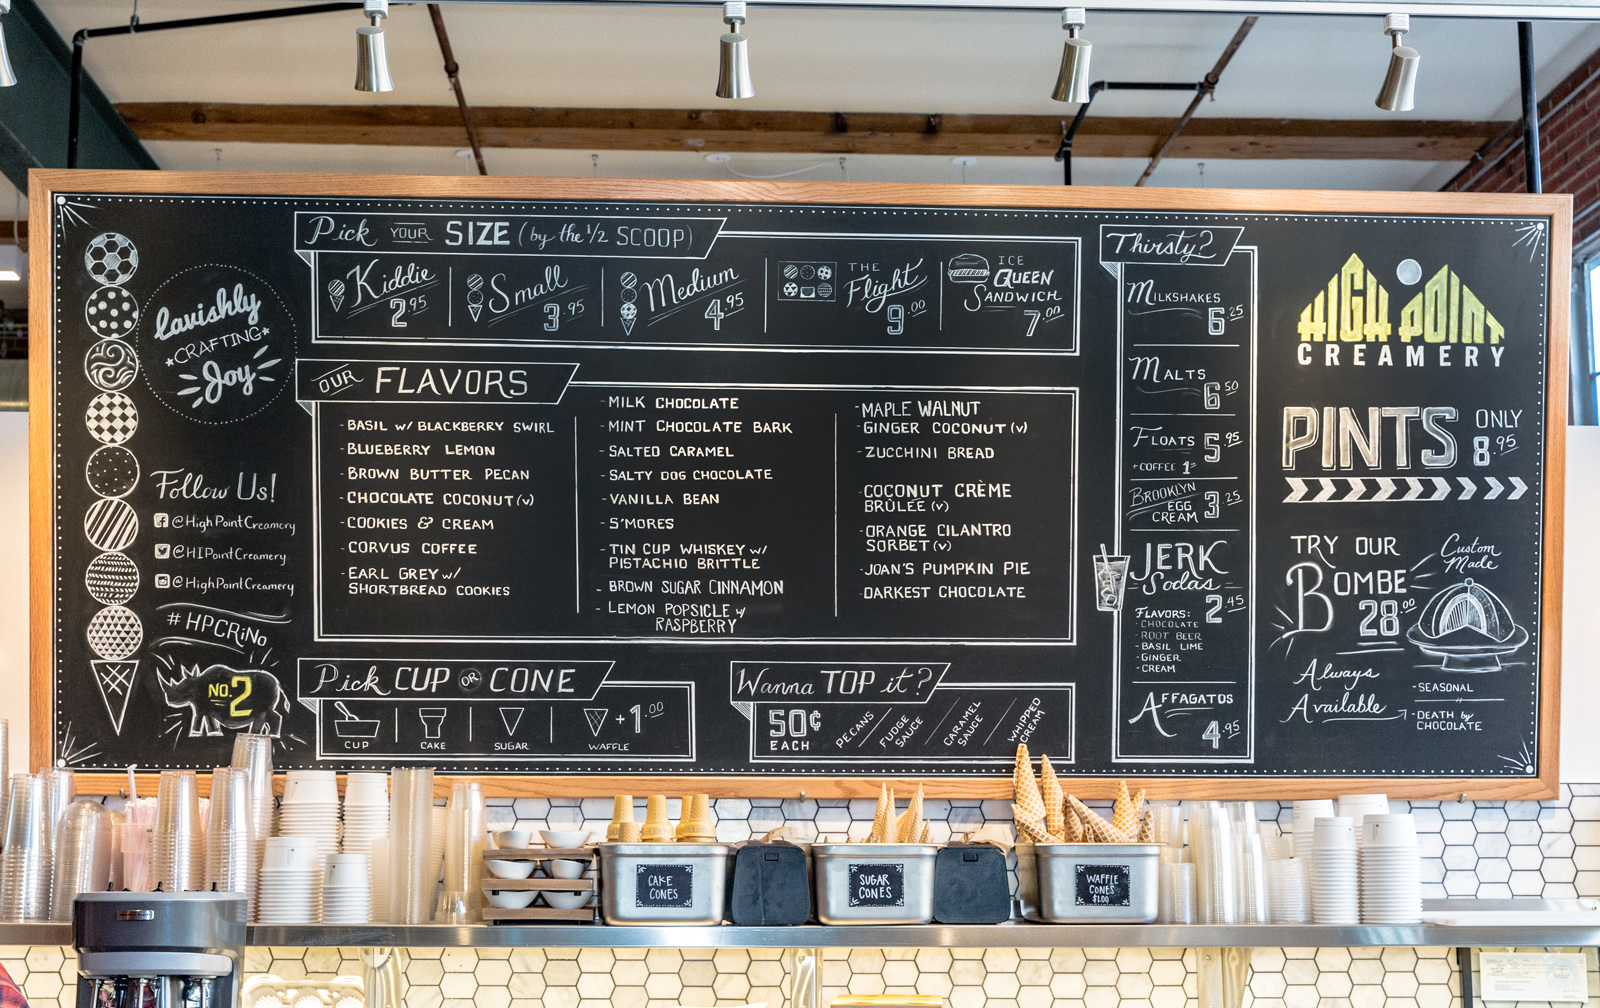 Pick YOUR SIZE (by the 1/2 SCOOP)
Kiddie 2.95
Small 3.95
Medium 4.95
THE Flight 9.00
ICE QUEEN SANDWICH 7.00
lavishly
CRAFTING
Joy
Follow Us!
@HighPointCreamery
@HIPointCreamery
@HighPointCreamery
#HPCRiNo
NO. 2
OUR FLAVORS
- BASIL w/ BLACKBERRY SWIRL
- BLUEBERRY LEMON
- BROWN BUTTER PECAN
- CHOCOLATE COCONUT (v)
- COOKIES & CREAM
- CORVUS COFFEE
- EARL GREY w/
SHORTBREAD COOKIES
- MILK CHOCOLATE
- MINT CHOCOLATE BARK
- SALTED CARAMEL
- SALTY DOG CHOCOLATE
- VANILLA BEAN
- S'MORES
- TIN CUP WHISKEY w/
PISTACHIO BRITTLE
- BROWN SUGAR CINNAMON
- LEMON POPSICLE w/
RASPBERRY
- MAPLE WALNUT
- GINGER COCONUT (v)
- ZUCCHINI BREAD
- COCONUT CRÈME
BRÛLÉE (v)
- ORANGE CILANTRO
SORBET (v)
- JOAN'S PUMPKIN PIE
- DARKEST CHOCOLATE
Pick CUP OR CONE
CUP
CAKE
SUGAR
WAFFLE
+1.00
Wanna TOP it?
50¢
EACH
PECANS
FUDGE
SAUCE
CARAMEL
SAUCE
WHIPPED
CREAM
Thirsty?
MILKSHAKES
6.25
MALTS
6.50
FLOATS 5.95
+ COFFEE 1
BROOKLYN
EGG
CREAM 3.25
JERK
Sodas
2.45
FLAVORS:
- CHOCOLATE
- ROOT BEER
- BASIL LIME
- GINGER
- CREAM
AFFAGATOS
4.95
HIGH POINT
CREAMERY
PINTS ONLY
8.95
TRY OUR
BOMBE
28.00
Custom
Made
Always
Available
- SEASONAL
- DEATH by
CHOCOLATE
CAKE
CONES
SUGAR
CONES
WAFFLE
CONES
$1.00